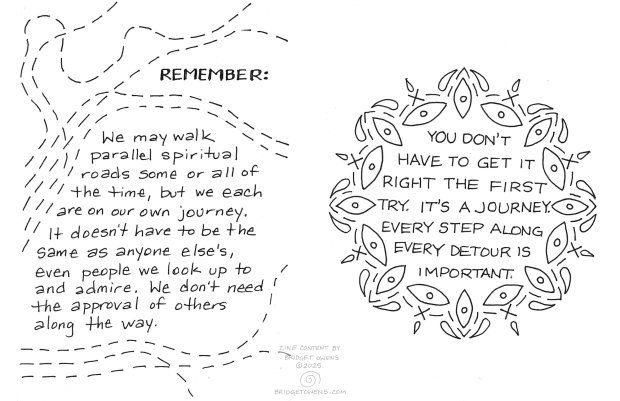 REMEMBER:
We may walk
parallel spiritual
roads some or all of
the time, but we each
are on our own journey.
It doesn't have to be the
same as anyone else's,
even people we look up to
and admire. We don't need
the approval of others
along the way.
YOU DON'T
HAVE TO GET IT
RIGHT THE FIRST
TRY. IT'S A JOURNEY.
EVERY STEP ALONG
EVERY DETOUR IS
IMPORTANT.
ZINE CONTENT BY
BRIDGET OWENS
©2025
BRIDGETOWENS.COM